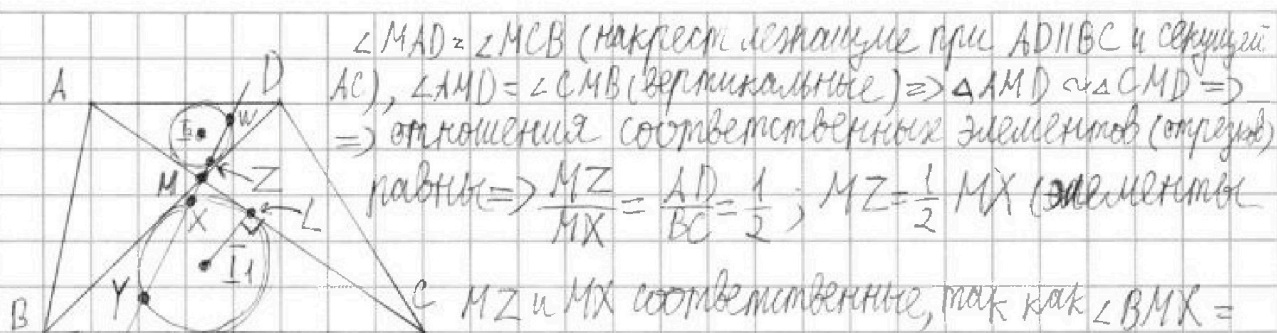 ∠MAD = ∠MCB (накрест лежащие при AD||BC и секущей
AC), ∠AMD = ∠CMB (вертикальные) => △AMD ~ △CMD =>
=> отношения соответственных элементов (отрезков)
равны => MZ/MX = AD/BC = 1/2 ; MZ = 1/2 MX (элементы
MZ и MX соответственные, так как ∠BMX =
A
D
W
I₂
M
Z
X
L
I₁
Y
B
C